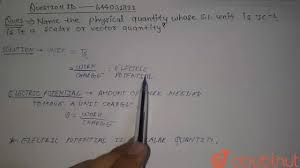 Question ID — 644031231
Ques → Name the physical quantity whose S.I. unit is JC⁻¹
Is it a scalar or vector quantity?
SOLUTION → UNIT =
= WORK / CHARGE = ELECTRIC POTENTIAL
ELECTRIC POTENTIAL → AMOUNT OF WORK NEEDED
TO MOVE A UNIT CHARGE
= WORK / CHARGE
* ELECTRIC POTENTIAL IS SCALAR QUANTITY.
doubtnut